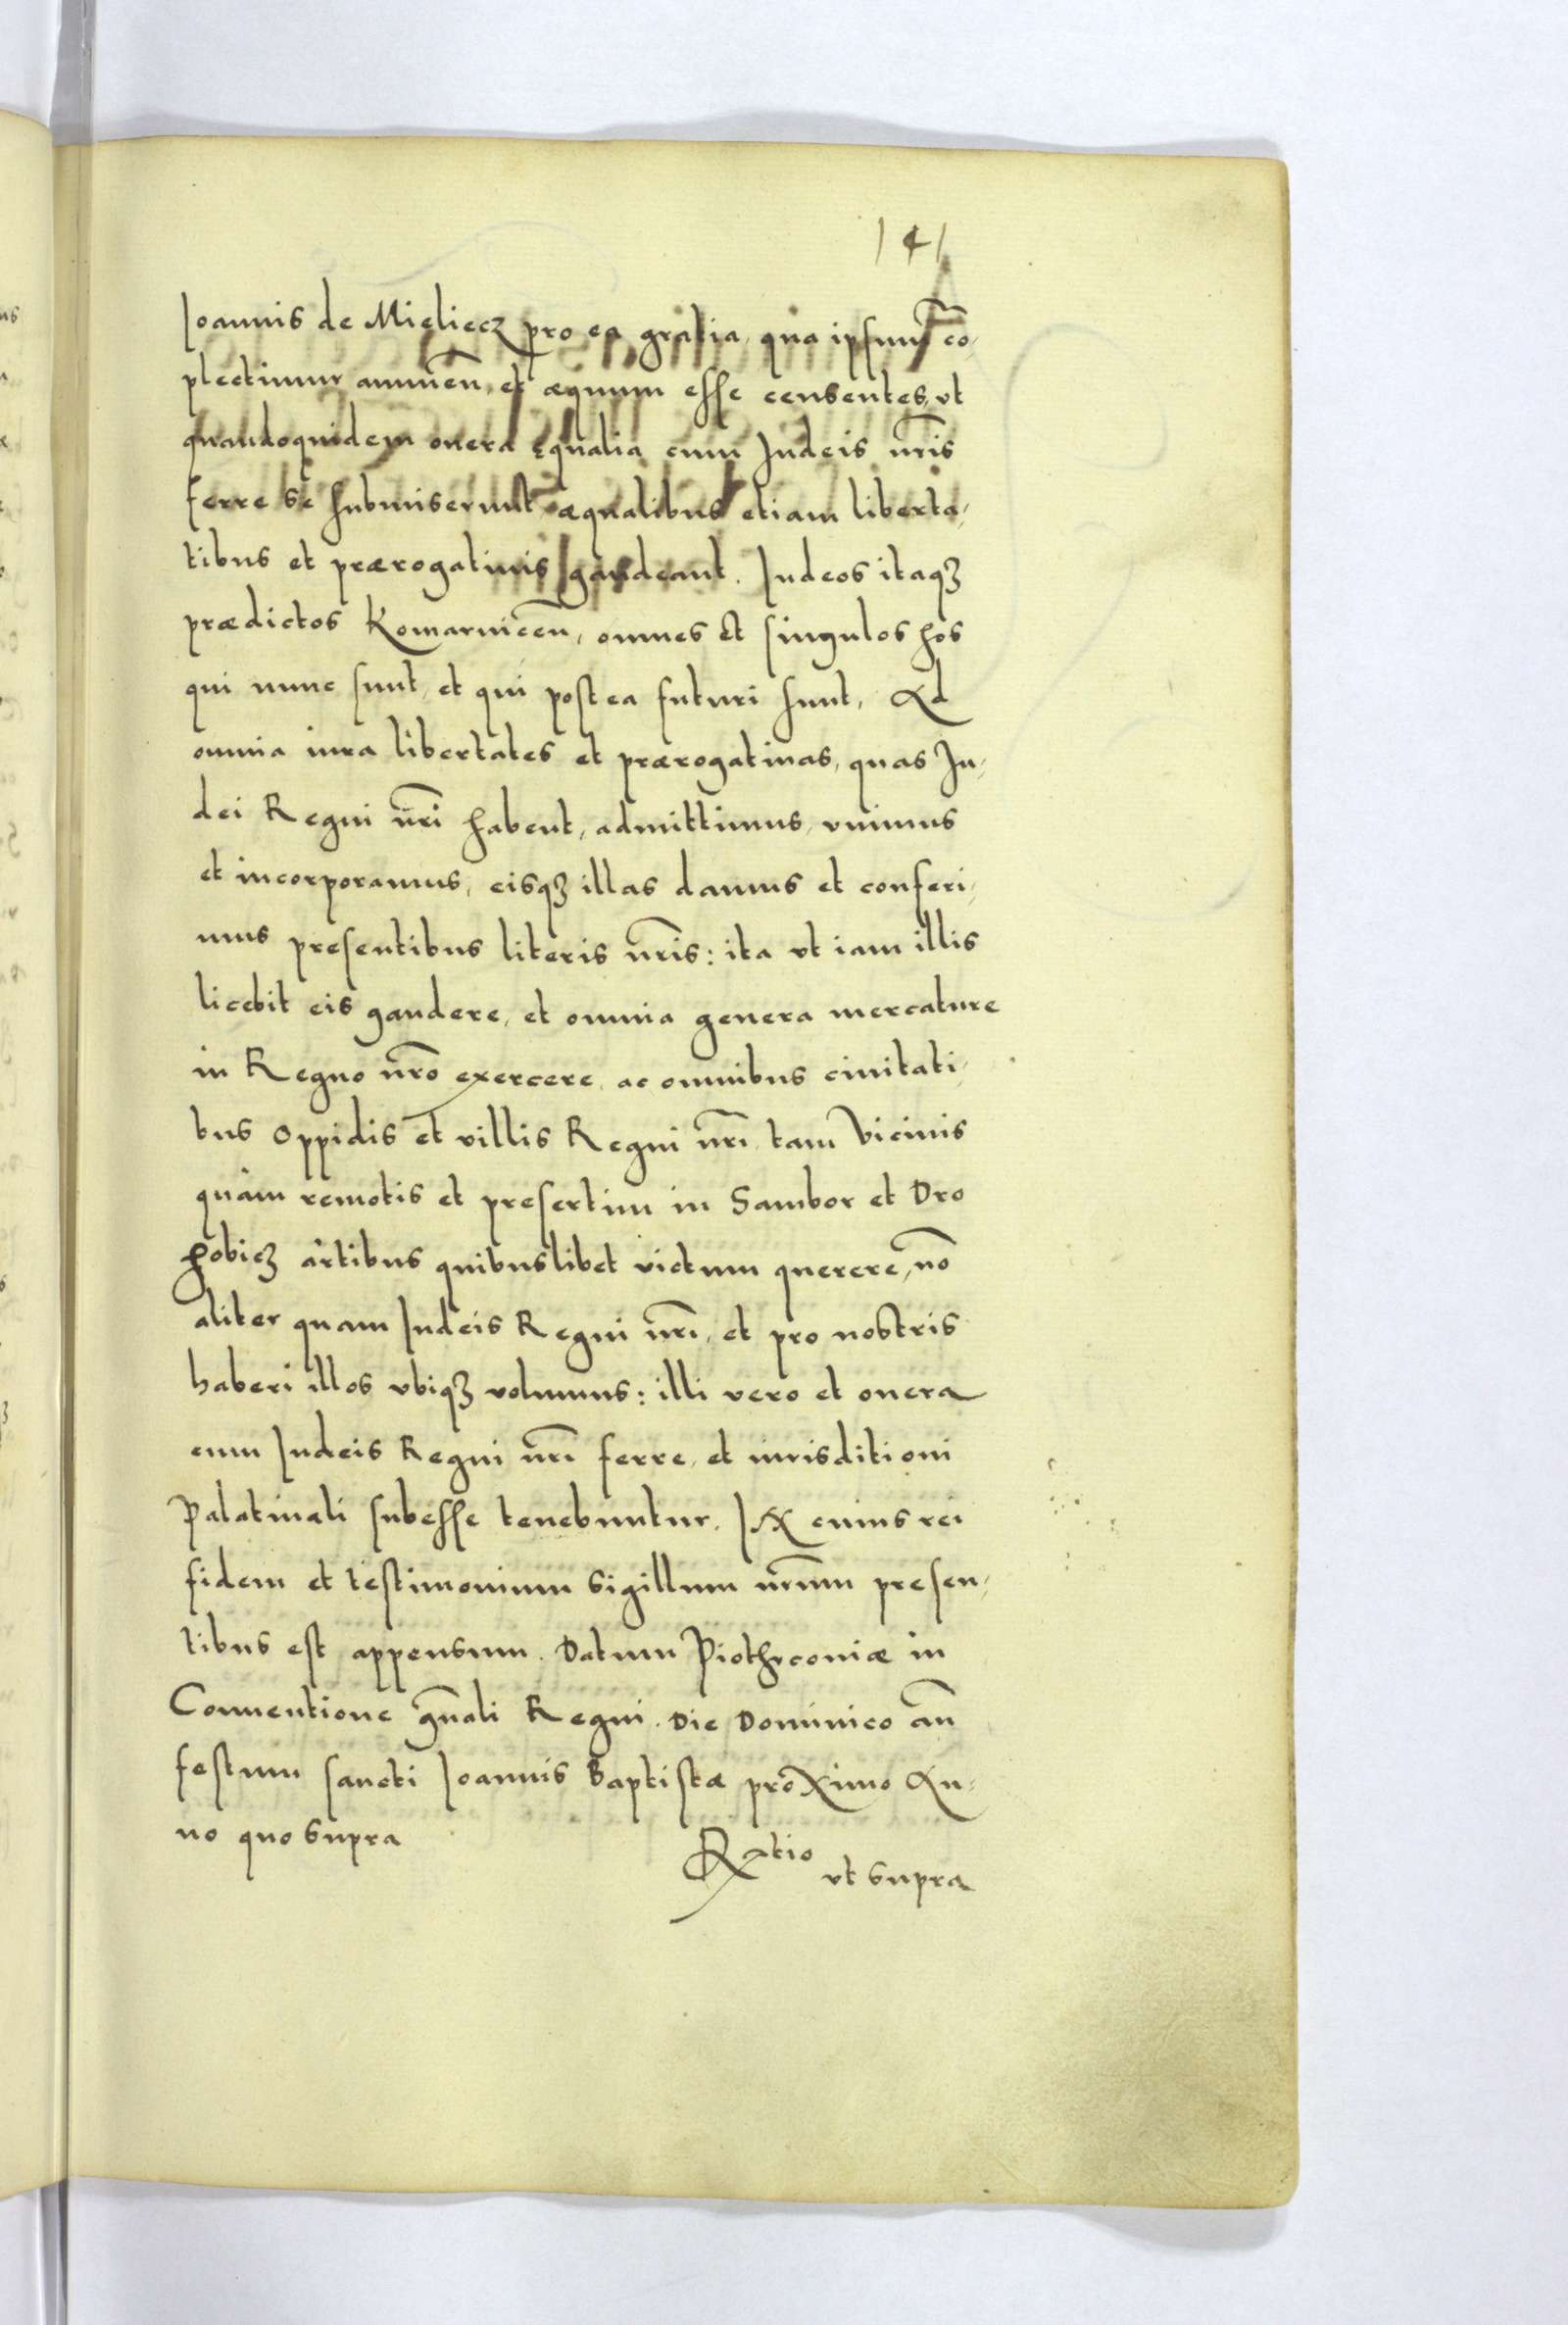 141
Joannis de Mieliecz pro ea gratia, qua ipsum co̅-
plectimur annuen̅, et æquum esse censentes, vt
quandoquidem onera ęqualia cum Judeis nr̅is
ferre se submiserunt æqualibus etiam liberta-
tibus et prærogatiuis gaudeant. Judeos itaqꝫ
prædictos Komarnicen̅, omnes et singulos hos
qui nunc sunt, et qui post ea futuri sunt, Ad
omnia iura libertates et prærogatiuas, quas Ju-
dei Regni nr̅i habent, admittimus, vnimus
et incorporamus, eisqꝫ illas damus et conferi-
mus presentibus literis nr̅is: ita vt iam illis
licebit eis gaudere, et omnia genera mercature
in Regno nr̅o exercere, ac omnibus ciuitati-
bus oppidis et villis Regni nr̅i, tam vicinis
quàm remotis et presertim in Sambor et Dro
hobicz artibus quibuslibet victum querere, no̅
aliter quam Judeis Regni nr̅i, et pro nostris
haberi illos vbiqꝫ volumus: illi vero et onera
cum Judeis Regni nr̅i ferre, et iurisditioni
Palatinali subesse tenebuntur. IN cuius rei
fidem et testimonium sigillum nr̅um presen-
tibus est appensum. Datum Piothrconiæ in
Conuentione gn̅ali Regni. Die Dominico an̅
festum sancti Joannis Baptistæ proximo An-
no quo supra
Rxatio vt supra